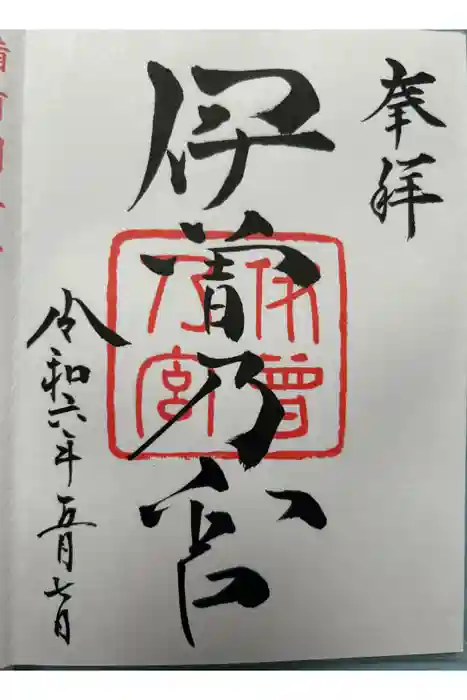 奉拝
伊曽乃宮
伊曽乃宮
令和六年五月七日